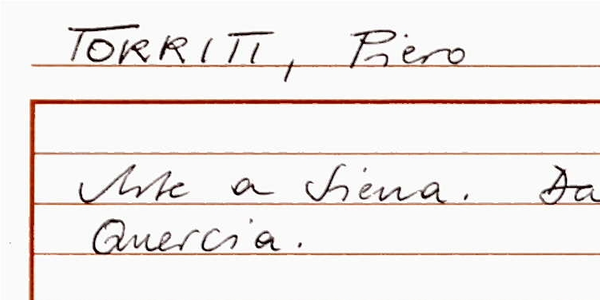 TORRITI, Piero
Arte a Siena. Da
Quercia.